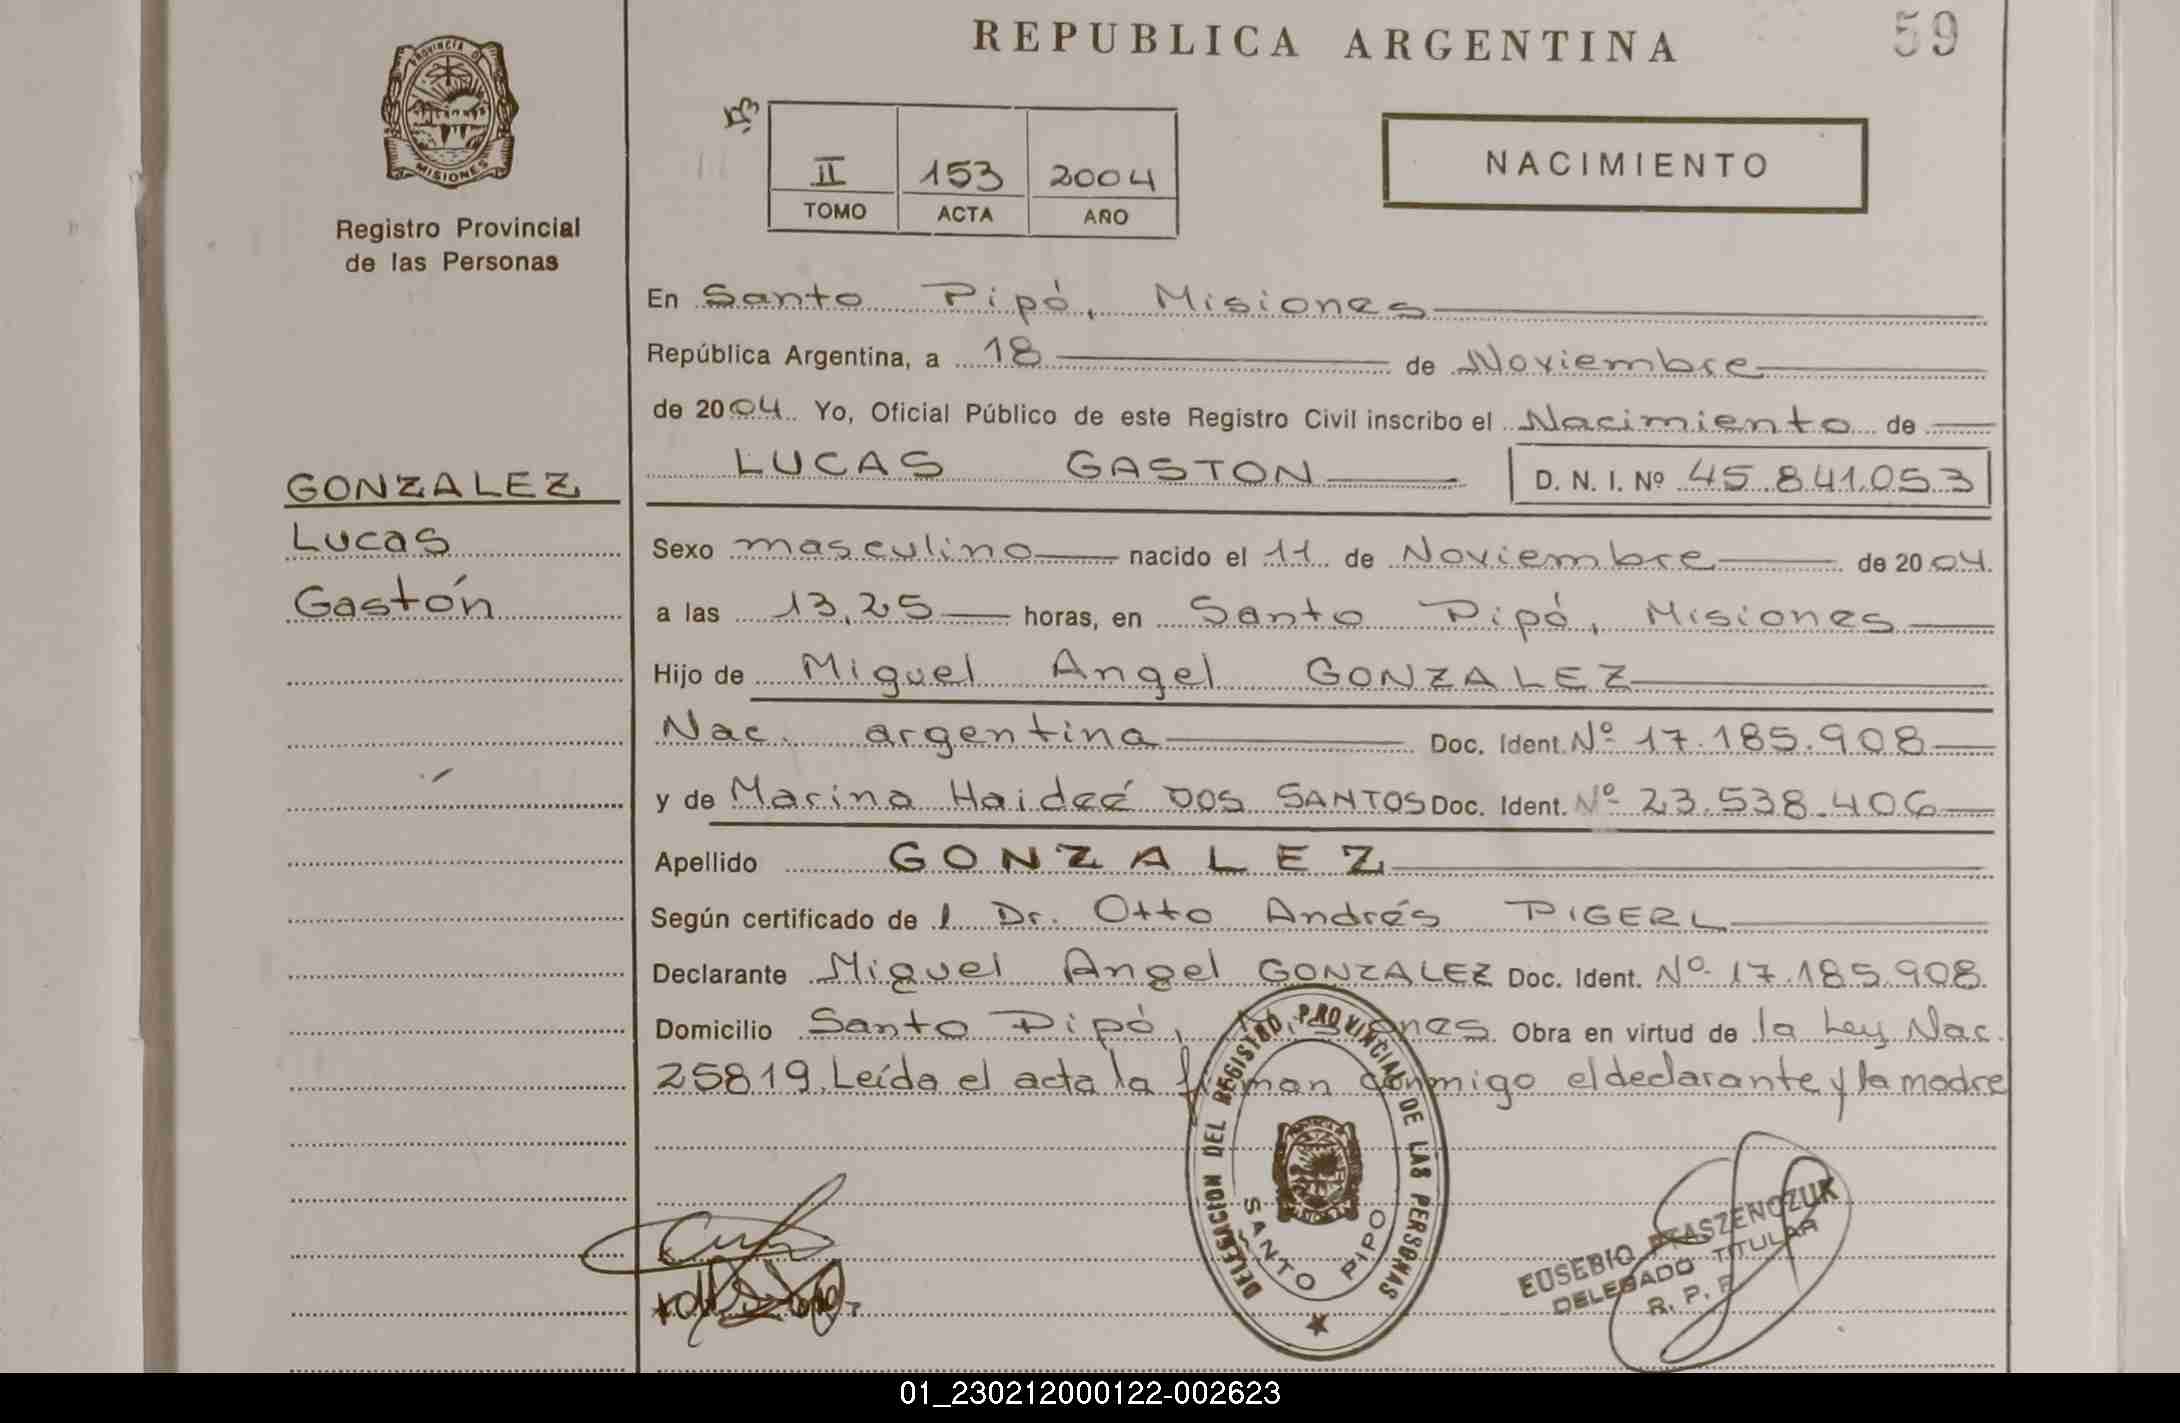 REPUBLICA ARGENTINA
59
PROVINCIA D
MISIONES
Registro Provincial
de las Personas
II 153 2004
TOMO ACTA AÑO
NACIMIENTO
En Santo Pipó, Misiones
República Argentina, a 18 de Noviembre
de 2004. Yo, Oficial Público de este Registro Civil inscribo el Nacimiento de
LUCAS GASTON D. N. I. Nº 45.841.053
GONZALEZ
Lucas
Gastón
Sexo masculino nacido el 11 de Noviembre de 2004.
a las 13,25 horas, en Santo Pipó, Misiones
Hijo de Miguel Angel GONZALEZ
Nac. argentina Doc. Ident. Nº 17.185.908
y de Marina Haideé DOS SANTOS Doc. Ident. Nº 23.538.406
Apellido GONZALEZ
Según certificado de l Dr. Otto Andrés PIGERL
Declarante Miguel Angel GONZALEZ Doc. Ident. Nº 17.185.908.
Domicilio Santo Pipó, Misiones. Obra en virtud de la Ley Nac.
25819. Leída el acta la firman conmigo el declarante y la madre
DELEGACION DEL REGISTRO PROVINCIAL DE LAS PERSONAS
SANTO PIPO
EUSEBIO PTASZENCZUK
DELEGADO TITULAR
R. P. P.
01_230212000122-002623